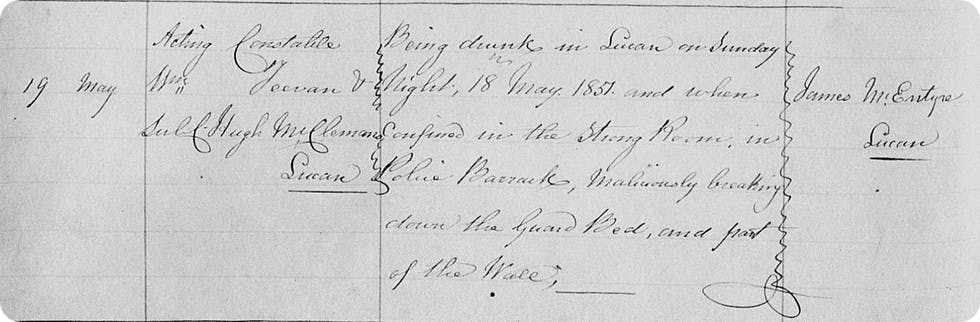 19 May
Acting Constable
Wm Teevan &
Sub C. Hugh
Lucan
Being drunk in Lucan on Sunday
Night, 18 May. 1851. and when
Confined in the Strong Room, in
Police Barrack, Maliciously breaking
down the Guard Bed, and part
of the Wall,
James McEntyre
Lucan